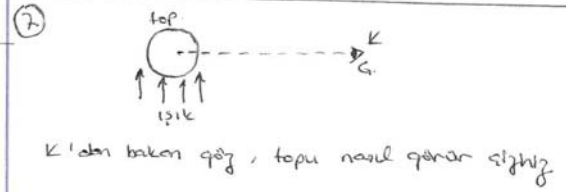 7
top
K
G.
ışık
K'dan bakan göz, topu nasıl görür çiziniz